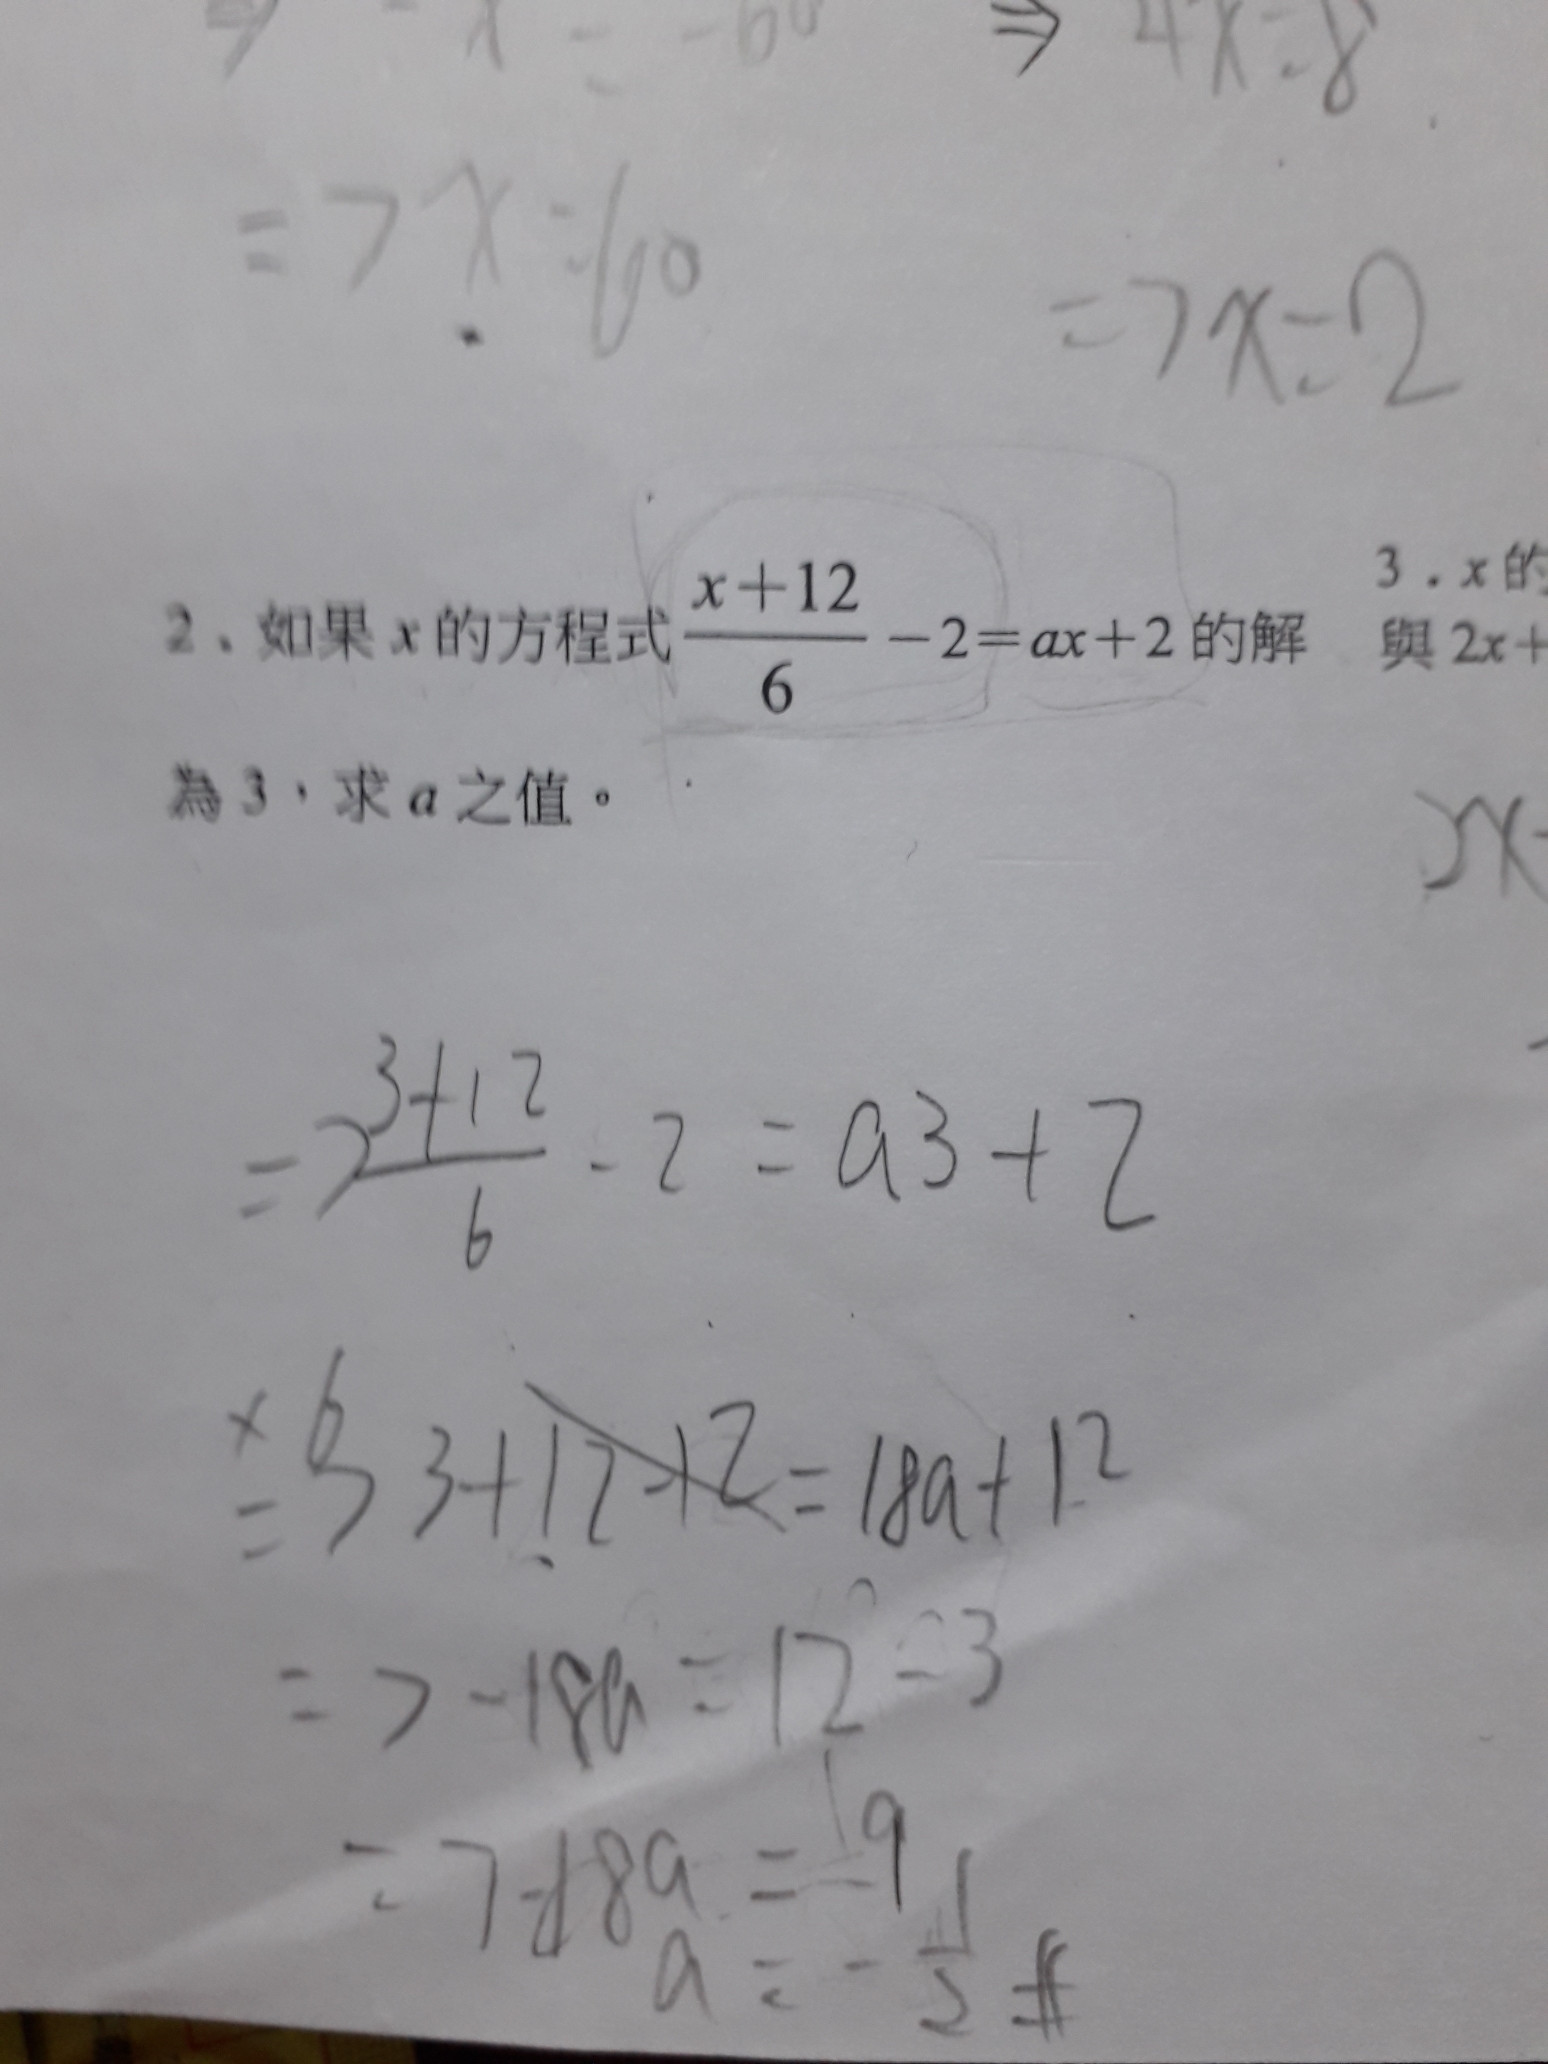 ⇒ -x = -60 ⇒ 4x=8
=> x=60
=> x=2
2.如果 x 的方程式 \frac{x+12}{6} -2=ax+2 的解
為 3,求 a 之值。
3.x 的
與 2x+
=> \frac{3+12}{6} - 2 = a3+2
×6
=> 3+12-12=18a+12
=> -18a = 12-3
=> -18a = 9
a = -\frac{1}{2} #